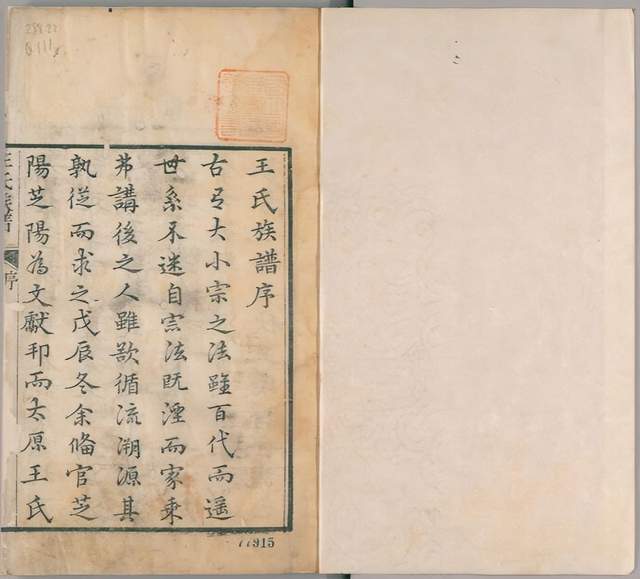 王氏族譜序
古有大小宗之法雖百代而遥
世系不迷自宗法既湮而家乗
弗講後之人雖欲循流溯源其
孰從而求之戊辰冬余俻官芝
陽芝陽為文獻邦而太原王氏
王氏族譜
序
77915